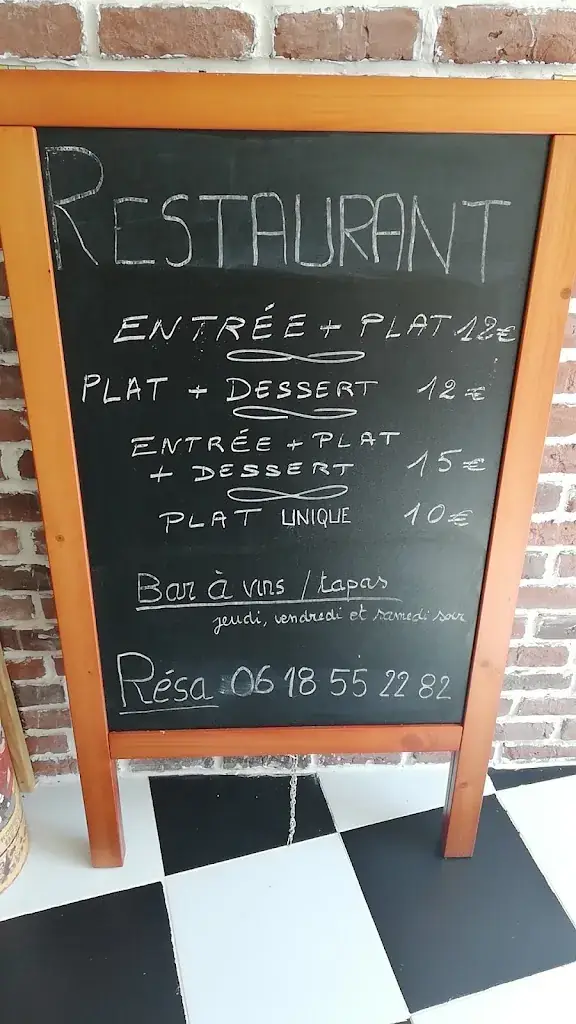 RESTAURANT
ENTRÉE + PLAT 12€
PLAT + DESSERT 12€
ENTRÉE + PLAT
+ DESSERT 15€
PLAT UNIQUE 10€
Bar à vins / tapas
jeudi, vendredi et samedi soir
Résa 06 18 55 22 82